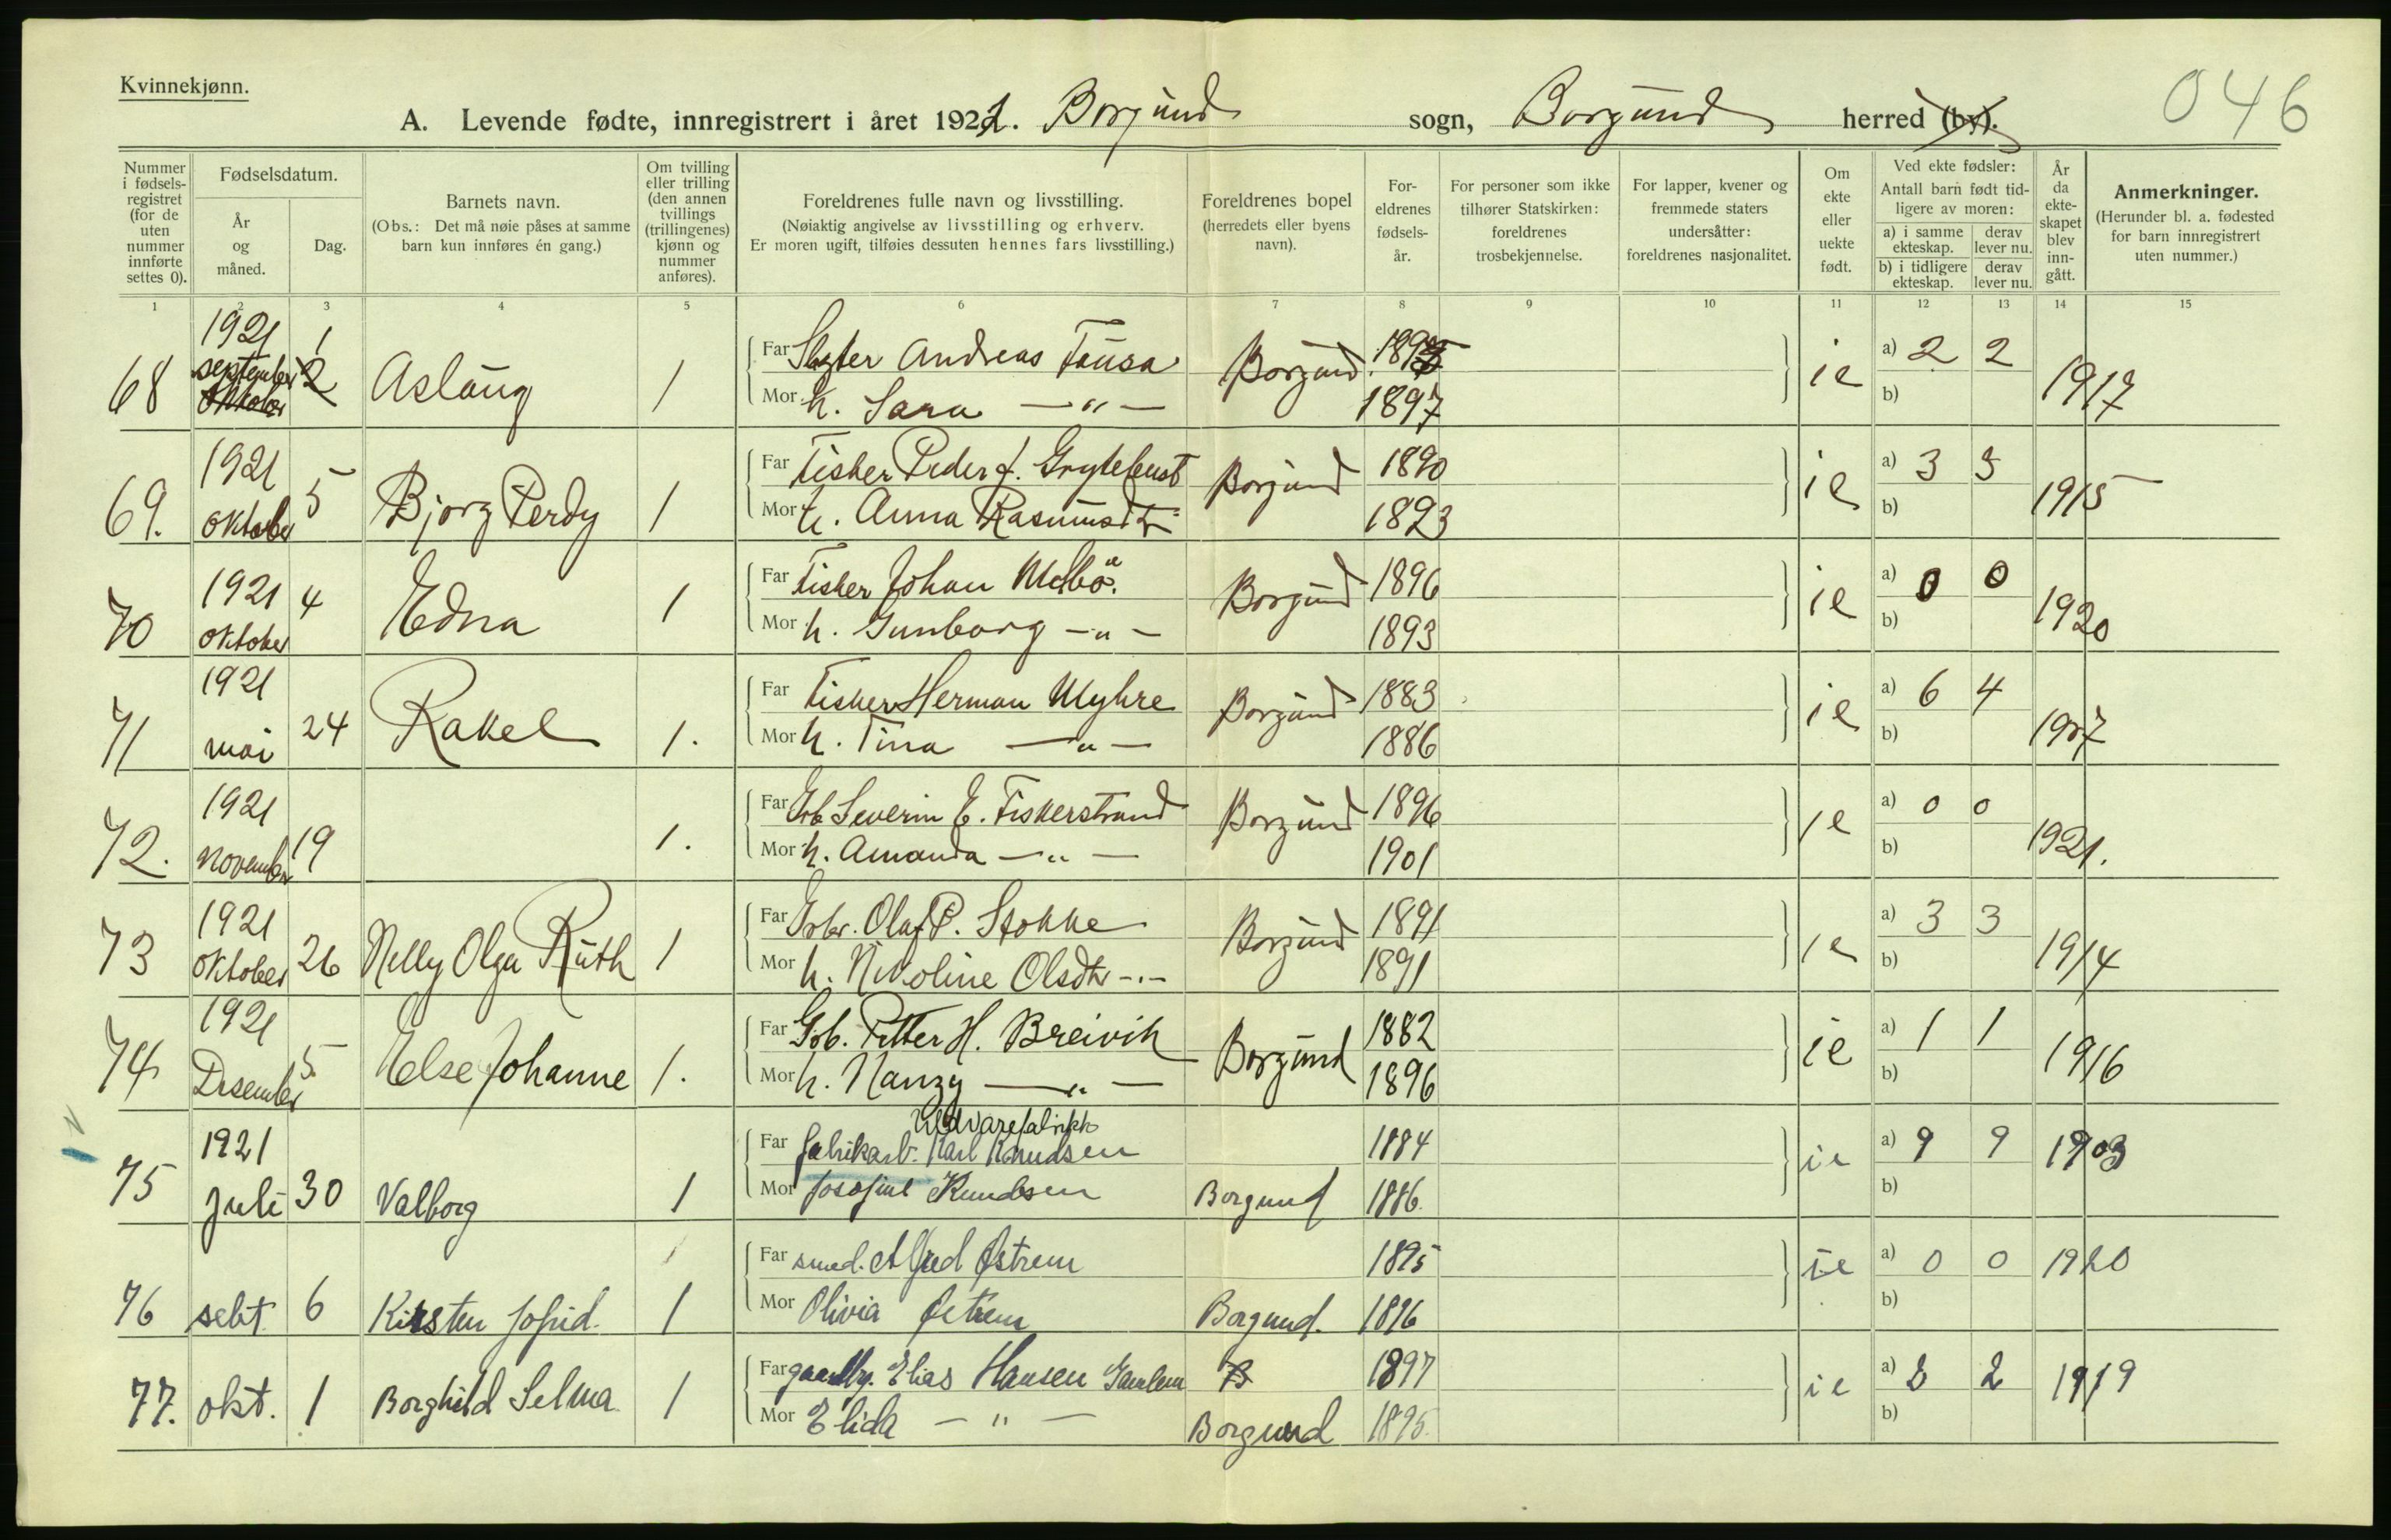 Kvinnekjønn.
046
A. Levende fødte, innregistrert i året 1921. Borgund sogn, Borgund herred (by).
Nummer i fødselsregistret (for de uten nummer innførte settes 0).
Fødselsdatum.
År og måned.
Dag.
Barnets navn.
(Obs.: Det må nøie påses at samme barn kun innføres én gang.)
Om tvilling eller trilling (den annen tvillings (trillingenes) kjønn og nummer anføres).
Foreldrenes fulle navn og livsstilling.
(Nøiaktig angivelse av livsstilling og erhverv.
Er moren ugift, tilføies dessuten hennes fars livsstilling.)
Foreldrenes bopel (herredets eller byens navn).
Foreldrenes fødselsår.
For personer som ikke tilhører Statskirken: foreldrenes trosbekjennelse.
For lapper, kvener og fremmede staters undersåtter: foreldrenes nasjonalitet.
Om ekte eller uekte født.
Ved ekte fødsler:
Antall barn født tidligere av moren:
a) i samme ekteskap. derav lever nu.
b) i tidligere ekteskap. derav lever nu.
År da ekteskapet blev inngått.
Anmerkninger.
(Herunder bl. a. fødested for barn innregistrert uten nummer.)
1 2 3 4 5 6 7 8 9 10 11 12 13 14 15
68 1921 september oktober 1 2 Aslaug 1 Far Andreas Tausa Borgund ie a) 2 2 1917
Mor h. Sara —"— 1897 b)
69. 1921 oktober 5 Bjorg Perdy 1 Far Fisker Peder J. Grytebust Borgund 1890 ie a) 3 3 1915
Mor h. Anna Rasmusdtr 1893 b)
70 1921 oktober 4 Edna 1 Far Fisker Johan Melbö. Borgund 1896 ie a) 0 0 1920
Mor h. Gunborg —"— 1893 b)
71 1921 mai 24 Rakel 1. Far Fisker Herman Myhre Borgund 1883 ie a) 6 4 1907
Mor h. Tina —"— 1886 b)
72. 1921 November 19 1. Far Grb Severin E. Fiskerstrand Borgund 1896 ie a) 0 0 1921.
Mor h. Amanda —"— 1901 b)
73 1921 oktober 26 Nelly Olga Ruth 1 Far Grbr. Olaf P. Stokke Borgund 1891 ie a) 3 3 1914
Mor h. Nikoline Olsdtr -"- 1891 b)
74 1921 Desember 5. Else Johanne 1. Far Grb. Petter H. Breivik Borgund 1882 ie a) 1 1 1916
Mor h. Nanzy —"— 1896 b)
Uldvarefabrikk
75 1921 juli 30 Valborg 1 Far fabrikarb. Karl Knudsen 1884 ie a) 9 9 1903
Mor Josefine Knudsen Borgund 1886. b)
76 sebt. 6 Kirsten Jofrid. 1 Far smed. Alfred Østrem 1895 ie a) 0 0 1920
Mor Olivia Østrem Borgund. 1896 b)
77. okt. 1 Borghild Selma 1 Far Elias Hansen Gamlem B 1897 ie a) 2 2 1919
Mor Elida —"— Borgund 1895. b)